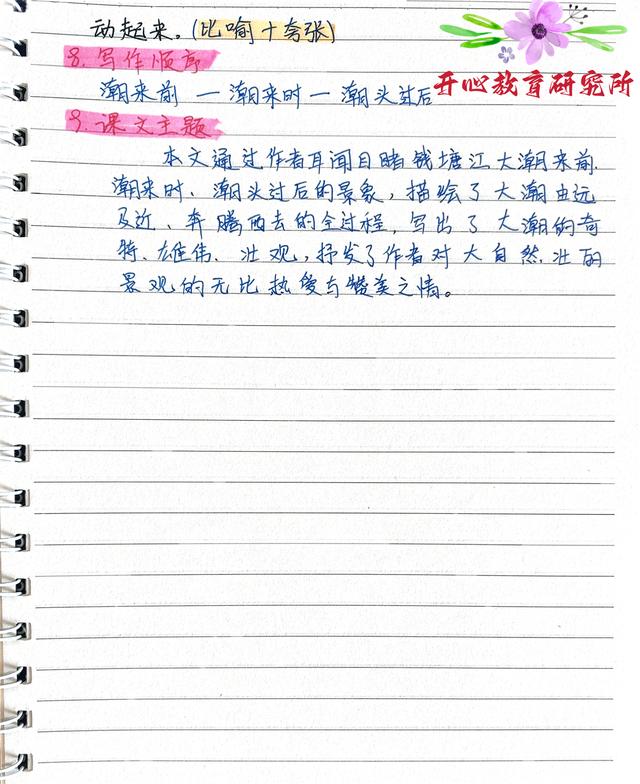 动起来。(比喻+夸张)
8.写作顺序
潮来前—潮来时—潮头过后
开心教育研究所
9.课文主题
本文通过作者耳闻目睹钱塘江大潮来前、
潮来时、潮头过后的景象,描绘了大潮由远
及近、奔腾西去的全过程,写出了大潮的奇
特、雄伟、壮观,抒发了作者对大自然壮的
景观的无比热爱与赞美之情。